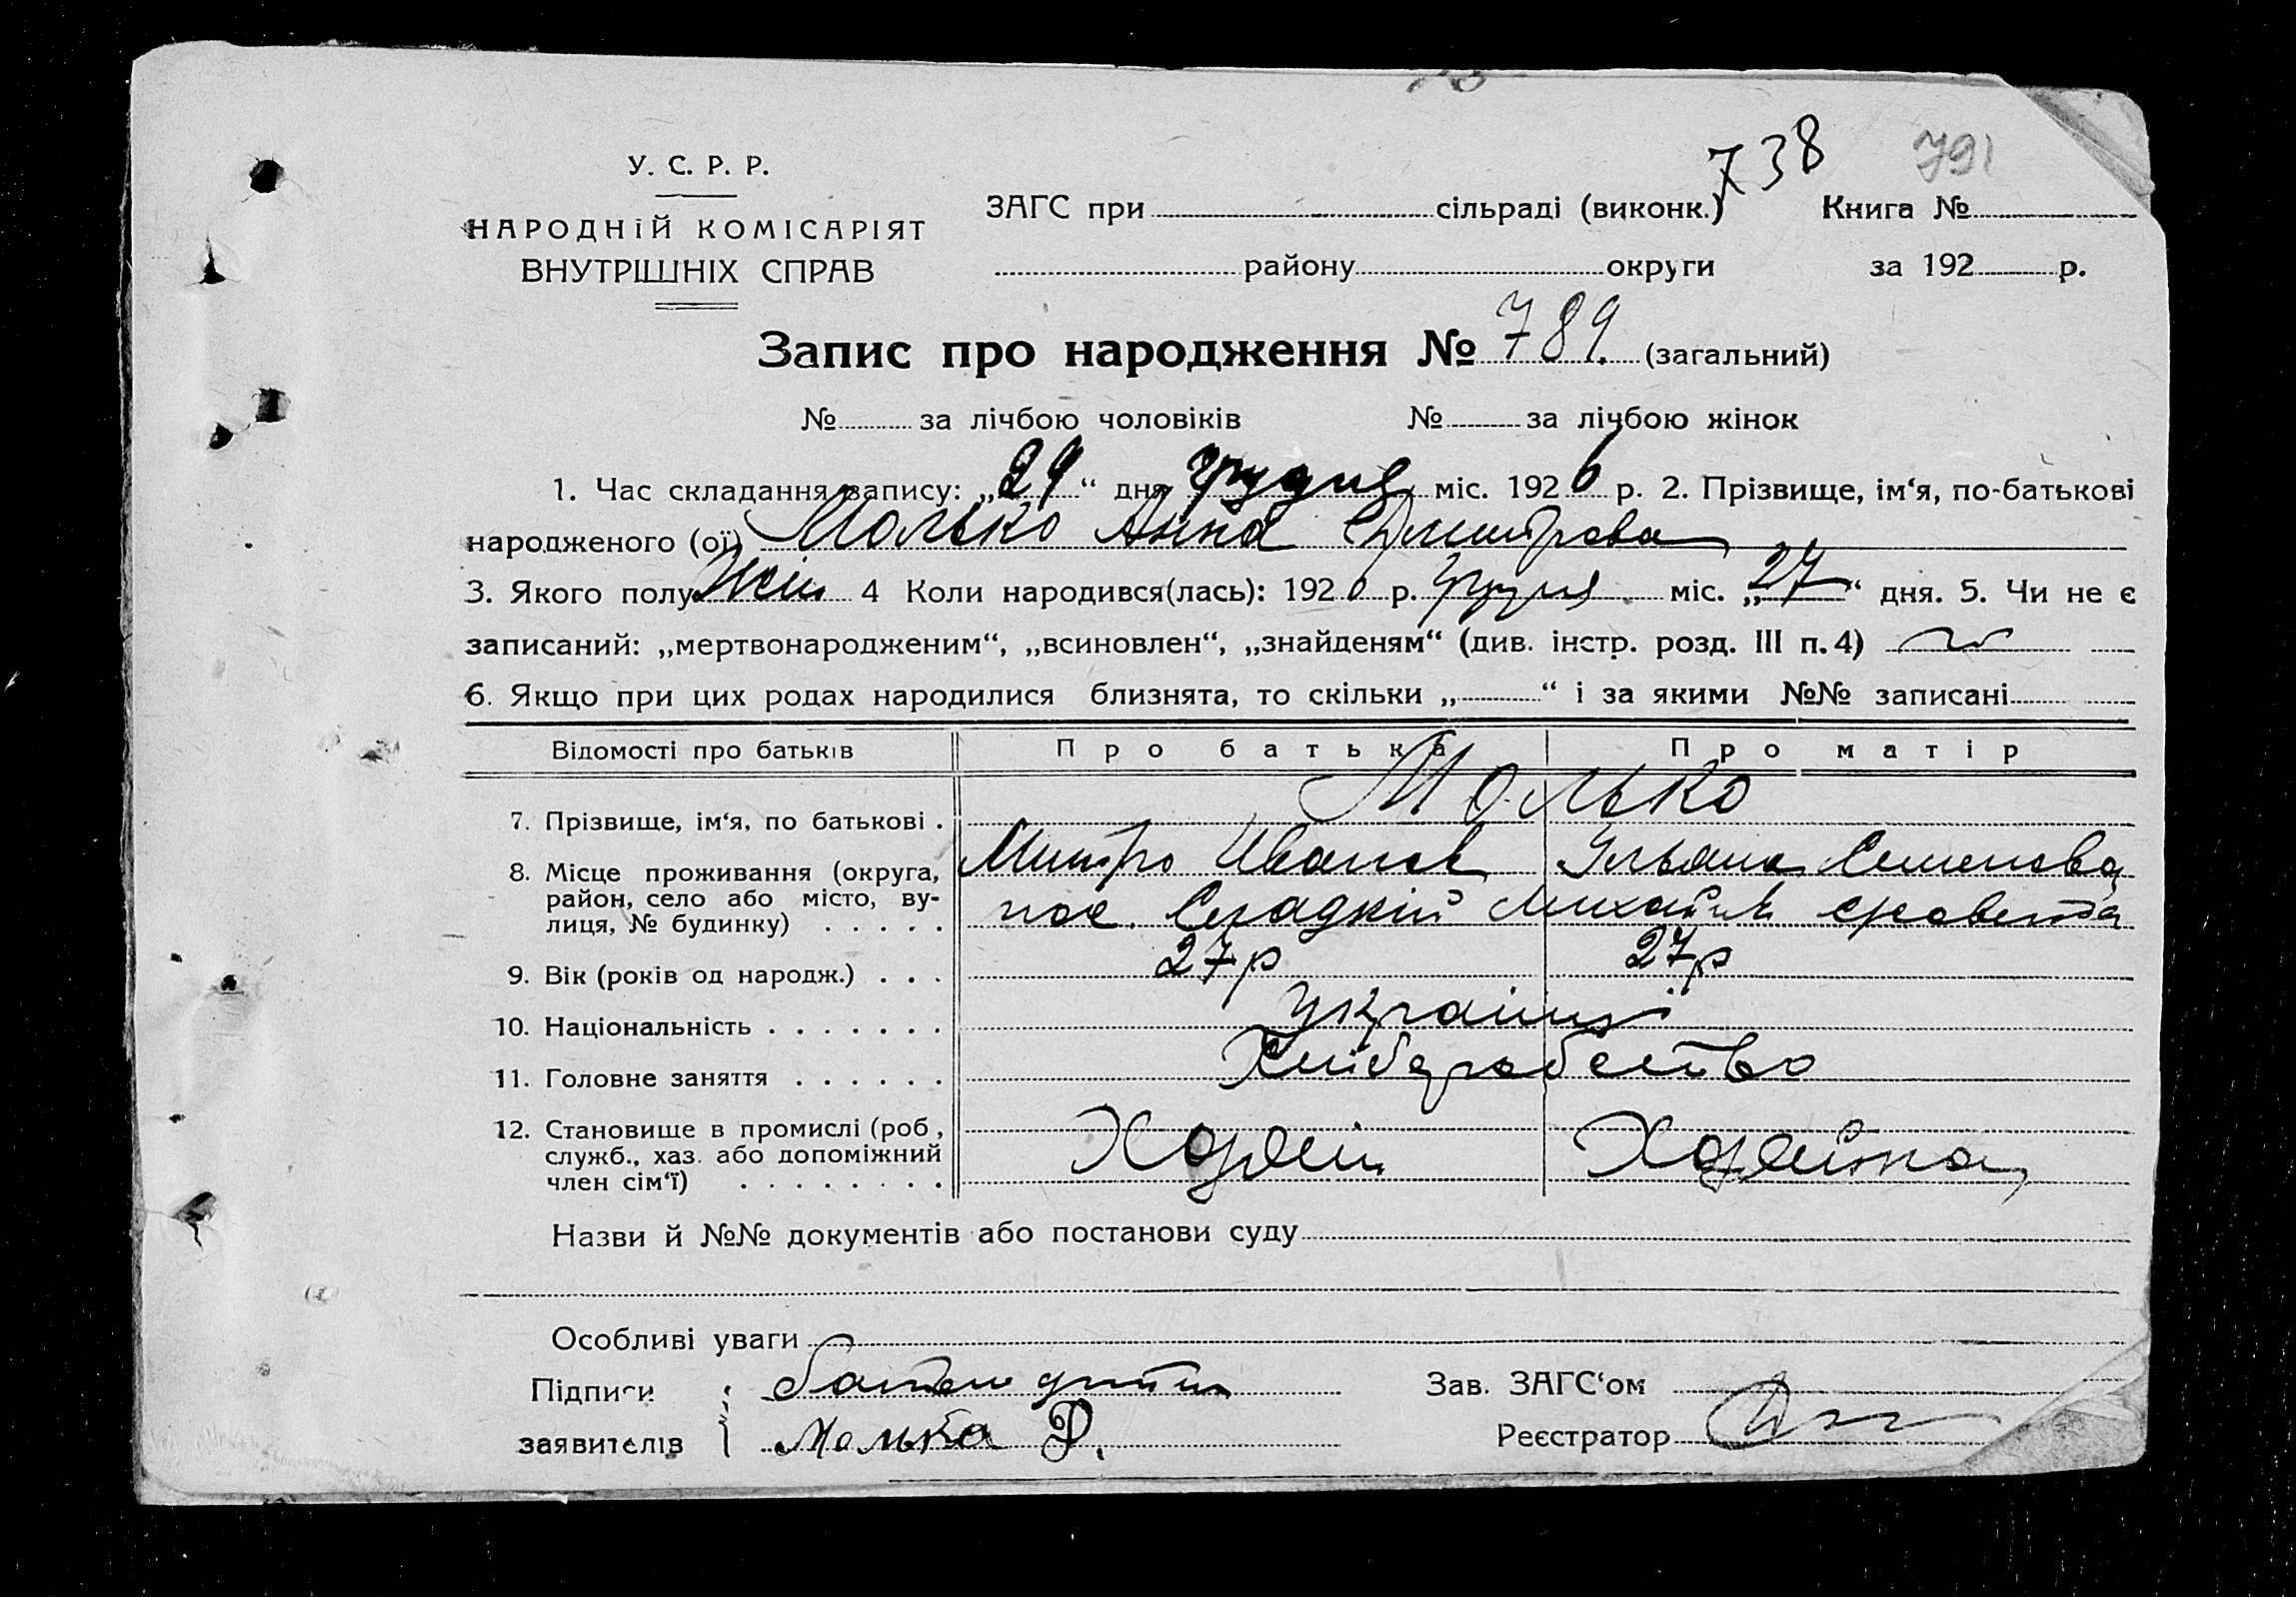 738 791
У. С. Р. Р.
НАРОДНІЙ КОМІСАРІЯТ
ВНУТРІШНІХ СПРАВ
ЗАГС при сільраді (виконк.) Книга №
району округи за 192 р.
Запис про народження № 789 (загальний)
№ за лічбою чоловіків № за лічбою жінок
1. Час складання запису: „29“ дня грудня міс. 1926 р. 2. Прізвище, ім‘я, по-батькові
народженого (ої) Молько Анна Дмитрова
3. Якого полу Жін 4 Коли народився(лась): 1926 р. грудня міс. „27“ дня. 5. Чи не є
записаний: „мертвонародженим“, „всиновлен“, „знайденям“ (див. інстр. розд. III п. 4)
6. Якщо при цих родах народилися близнята, то скільки „ “ і за якими №№ записані
Відомості про батьків Про батька Про матір
Молько
7. Прізвище, ім‘я, по батькові .
Митро Иванов Ульяна Семенова
8. Місце проживання (округа,
район, село або місто, ву-
лиця, № будинку) . . . . .
пос. Сладкій Михайлів
9. Вік (років од народж.) . . . 27 р 27 р
10. Національність . . . . . . . українці
11. Головне заняття . . . . . . Хлиборобство
12. Становище в промислі (роб.,
служб., хаз. або допоміжний
член сім‘ї) . . . . . . . .
Хозяїн Хозяйка
Назви й №№ документів або постанови суду
Особливі уваги
Підписи батько дитини Зав. ЗАГС‘ом
заявителів Молько Д. Реєстратор